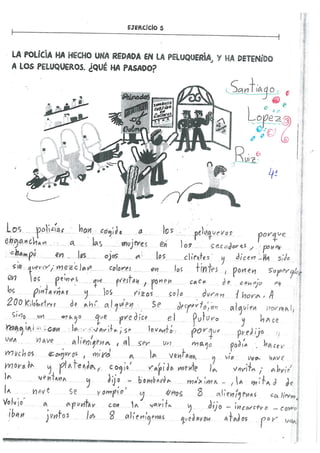 EJERCICIO 5
LA POLICÍA HA HECHO UNA REDADA EN LA PELUQUERÍA, Y HA DETENIDO
A LOS PELUQUEROS. ¿QUÉ HA PASADO?
Santiago
Lopez
Ruiz
4º
Peinados
Los policías han cogido a los peluqueros porque
enganchan a las mujeres en los secadores, ponen
champú en los ojos a los clientes y dicen-Ha sido
sin querer; mezclan colores en los tintes, ponen superglue
en los peines que prestan, ponen caca de conejo en
los pintauñas y los rizos solo duran 1 hora. A
200 kilómetros de ahí alguien se despertó, no alguien normal,
sino un mago que predice el futuro y hace
magia con la varita; se levantó porque predijo
una nave alienígena, al ser un mago podía hacer
muchos conjuros, miró a la ventana y vio una nave
morada y plateada, cogió rápidamente la varita; abrió
la ventana y dijo - bombarda máxima -, la mitad de
la nave se rompió y unos 8 alienígenas salieron,
Volvió a apuntar con la varita y dijo - incarcero - como
iban juntos los 8 alienígenas quedaron atados por una